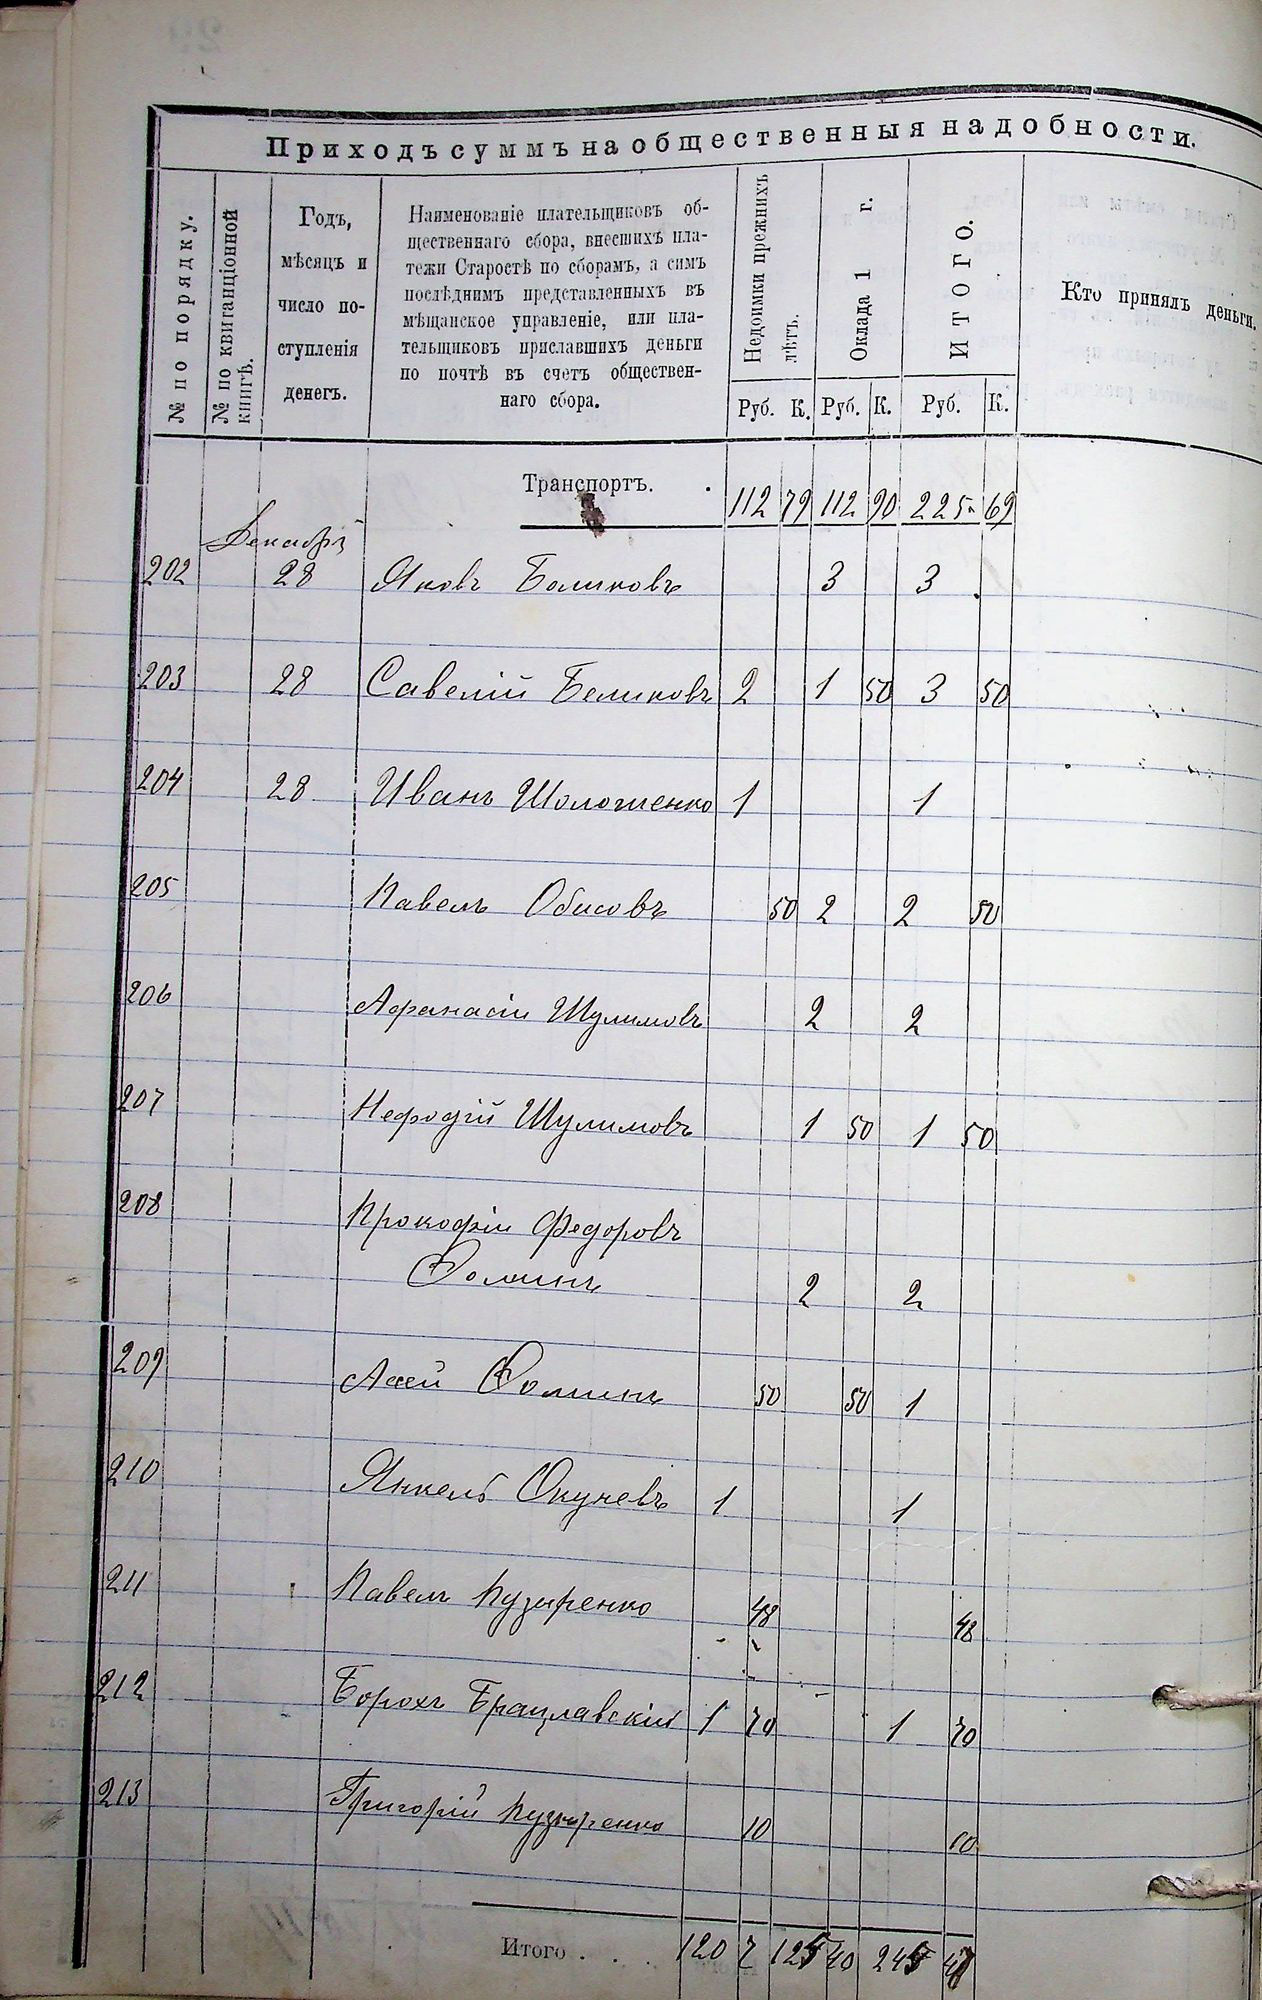 Приходъ суммъ на общественныя надобности.
№ по порядку.
№ по квитанціонной
книгѣ.
Годъ,
мѣсяцъ и
число по-
ступленія
денегъ.
Наименованіе плательщиковъ об-
щественнаго сбора, внесшихъ пла-
тежи Старостѣ по сборамъ, а симъ
послѣднимъ представленныхъ въ
мѣщанское управленіе, или пла-
тельщиковъ приславшихъ деньги
по почтѣ въ счетъ обществен-
наго сбора.
Недоимки прежнихъ
лѣтъ.
Оклада 1 г.
ИТОГО.
Кто принялъ деньги.
Руб. К. Руб. К. Руб. К.
Транспортъ. . 112 79 112 90 225 69
Декабрь
202 28 Яковъ Беликовъ 3 3
203 28 Савелій Беликовъ 2 1 50 3 50
204 28 Иванъ 1 1
205 Павелъ 50 2 2 50
206 Афанасій Шулимовъ 2 2
207 Нефодій Шулимовъ 1 50 1 50
208 Прокофій Федоровъ
Фоминъ 2 2
209 Фоминъ 50 50 1
210 Янкель Окуневъ 1 1
211 Павелъ Пузыренко 48 48
212 Борохъ Брацлавскій 1 70 1 70
213 Григорій Пузыренко 10 10
Итого . . . 120 7 125 40 245 47